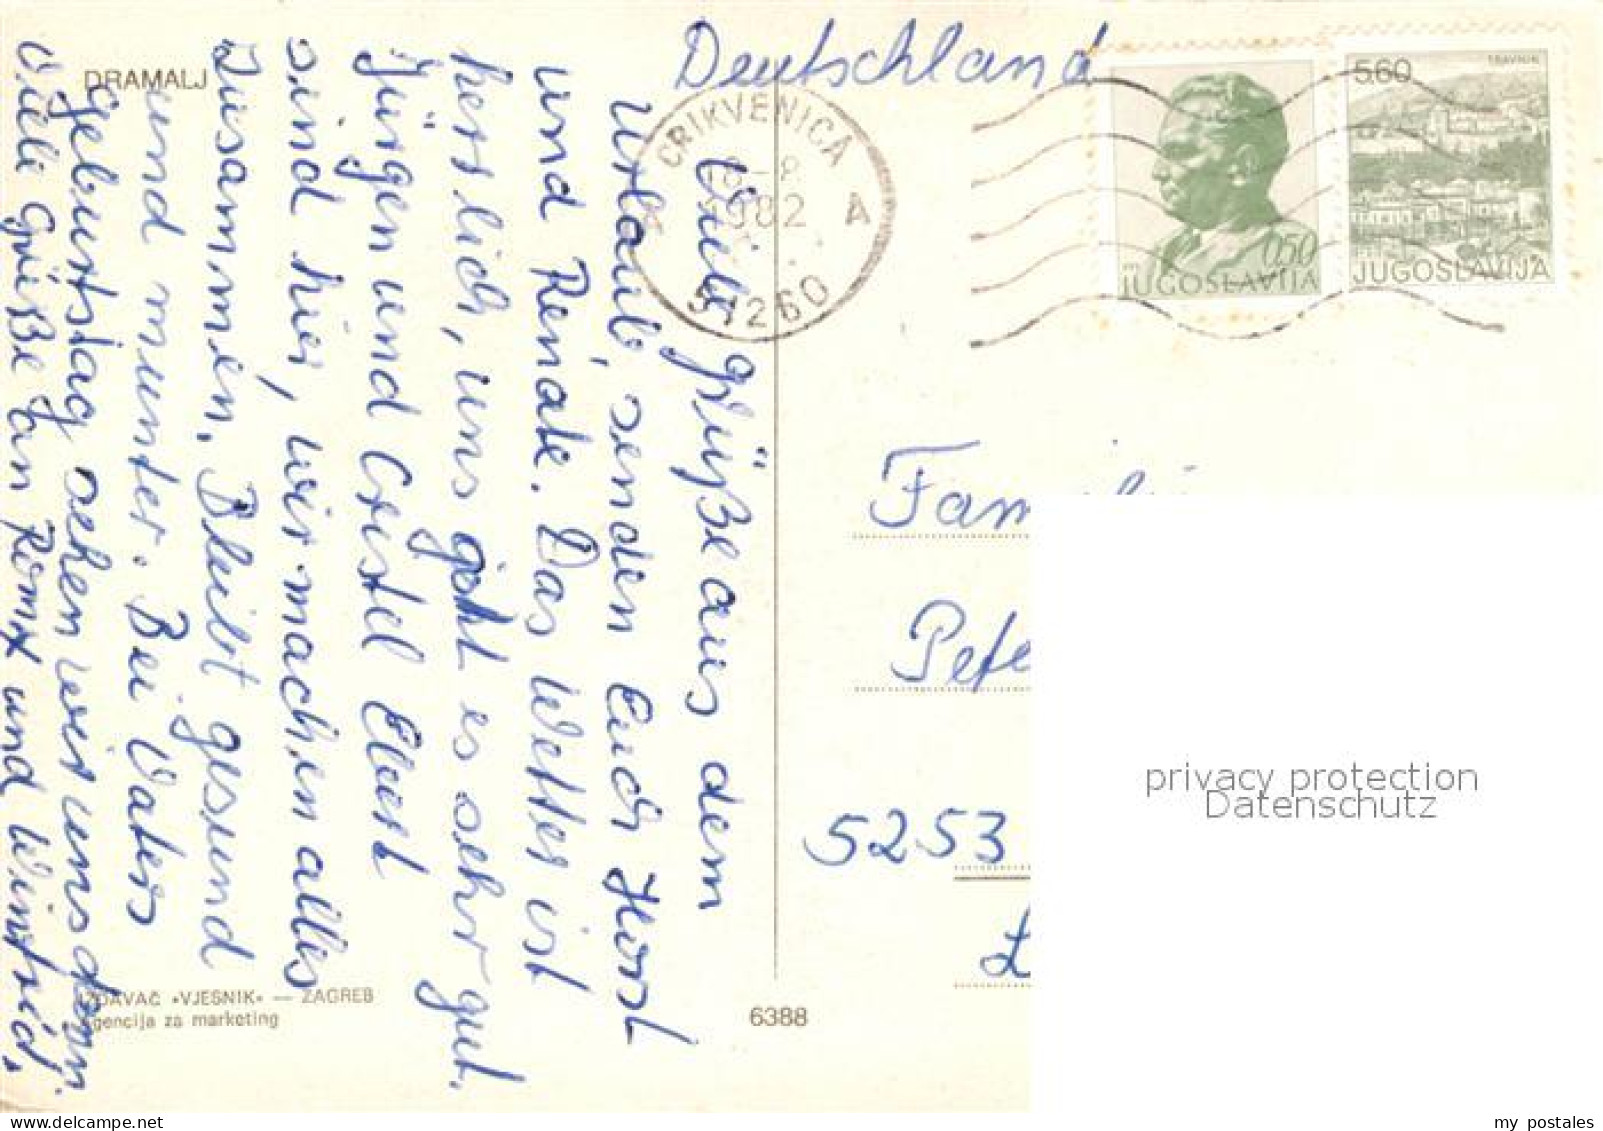 DRAMALJ
Deutschland
CRIKVENICA
-8
1982
A
51260
TRAVNIK
5,60
JUGOSLAVIJA
0,50
JUGOSLAVIJA
Viele Grüße aus dem
Urlaub, senden Euch Horst
und Renate. Das Wetter ist
herrlich, uns geht es sehr gut.
Jürgen und Cristel Ebert
sind hier, wir machen alles
Zusammen. Bleibt gesund
und munter. Bei Vaters
Geburtstag sehen wir uns dann.
Viele Grüße an und Winfried.
Fam
Pete
5253
IZDAVAČ »VJESNIK« — ZAGREB
Agencija za marketing
6388
privacy protection
Datenschutz
my postales